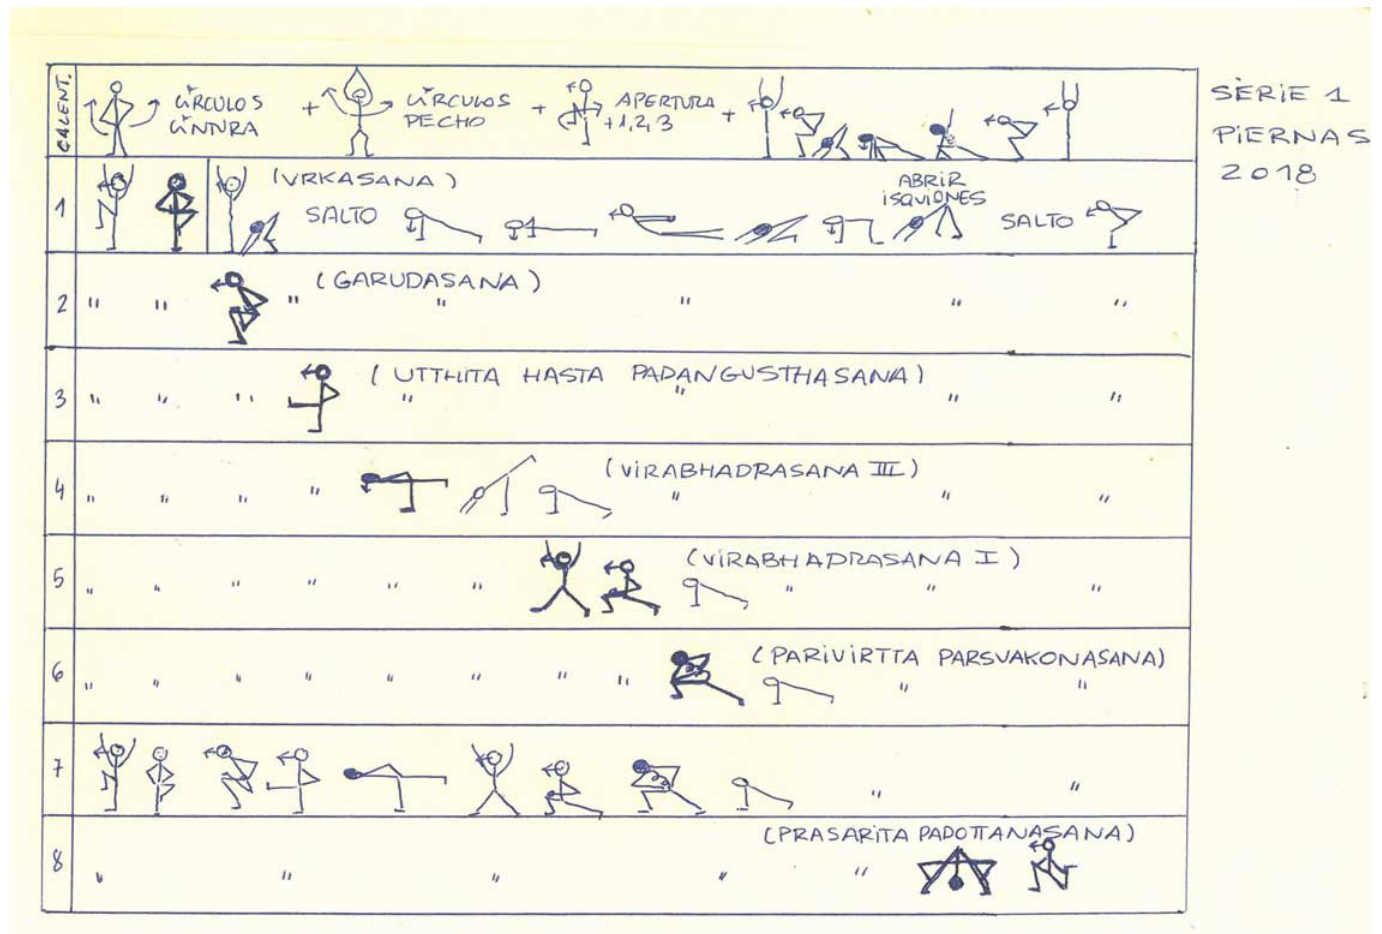 SERIE 1
PIERNAS
2018
CALENT.
CÍRCULOS CINTURA
+
CÍRCULOS PECHO
+
APERTURA +1,2,3
+
1
(VRKASANA)
SALTO
ABRIR
ISQUIONES
SALTO
2 " " " (GARUDASANA) " " " "
3 " " " (UTTHITA HASTA PADANGUSTHASANA) " " " "
4 " " " " (VIRABHADRASANA III) " " "
5 " " " " " " (VIRABHADRASANA I) " " "
6 " " " " " " " " (PARIVIRTTA PARSVAKONASANA) " "
7 " "
8 " " " " " (PRASARITA PADOTTANASANA)